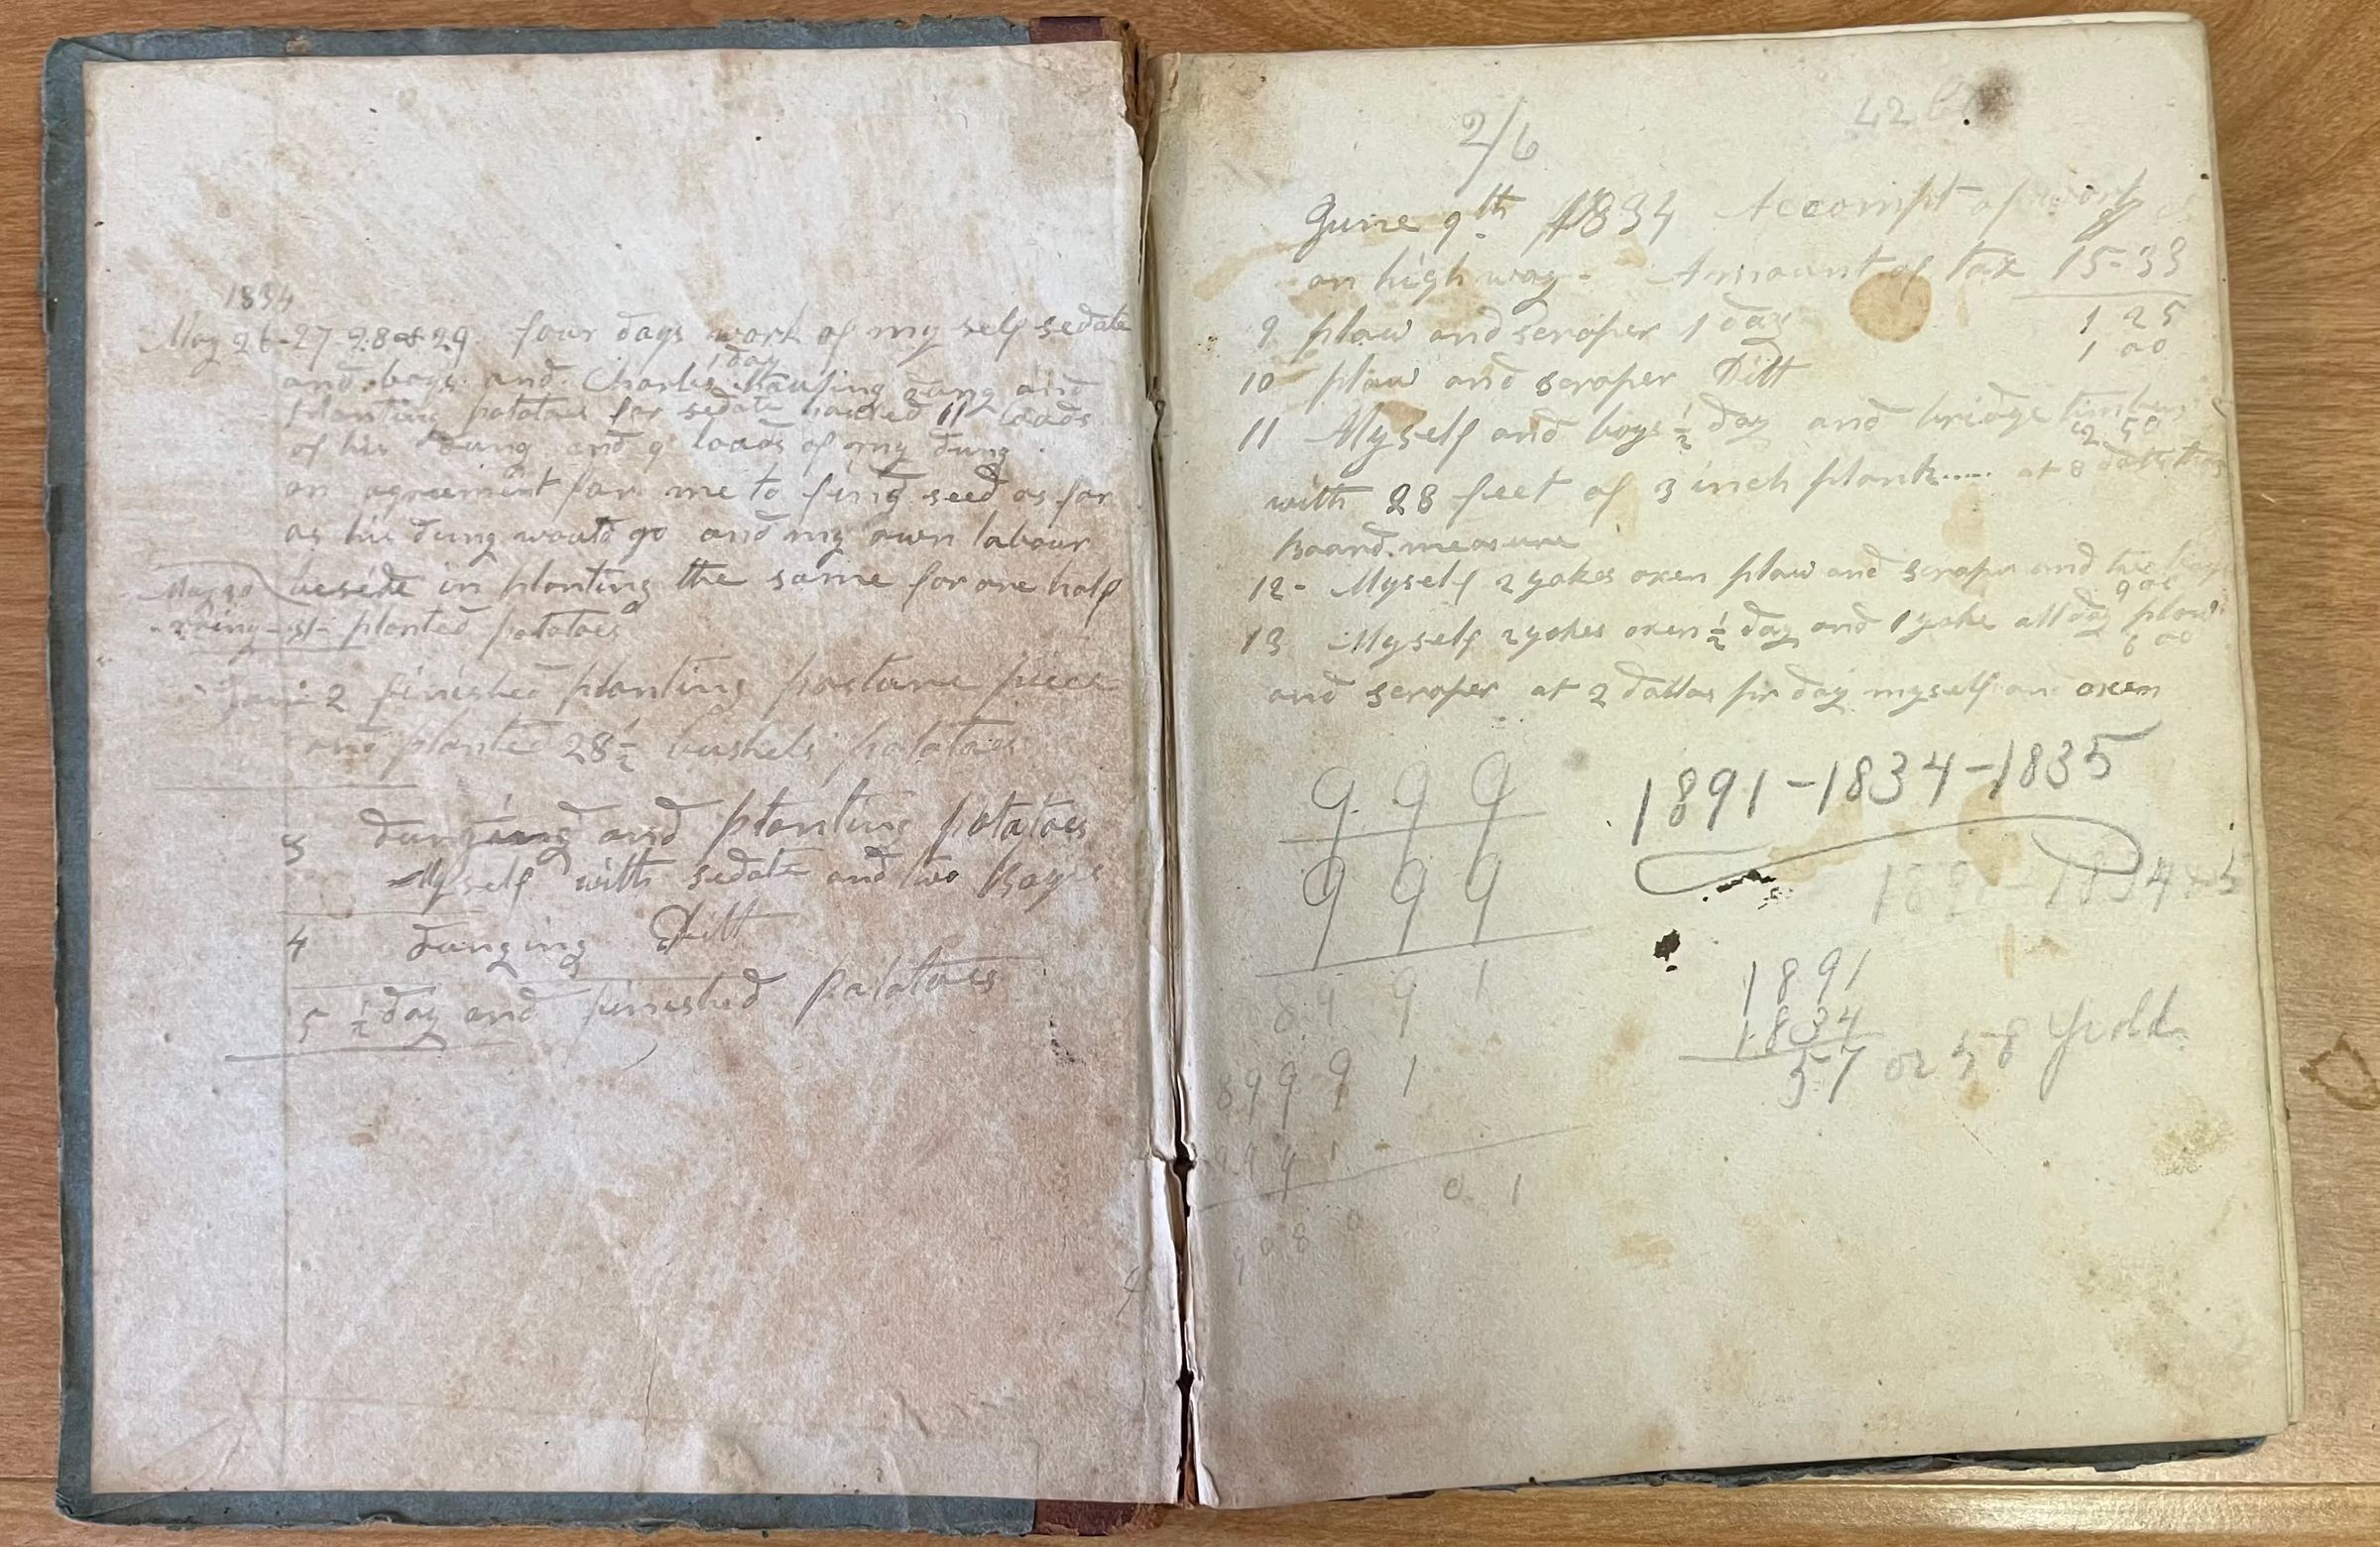 1834
May 26-27 28 & 29 four days work of my self sedate
and boys and Charles 1 day dung and
planting potatoes for sedate hauled 11 loads
of his dung and 9 loads of my dung
an agreement for me to find seed as far
as his dung would go and my own labour
May 30 beside in planting the same for one half
31 planted potatoes
2 finished planting pasture piece
and planted 28 1/2 bushels potatoes
3 dunging and planting potatoes
Myself with sedate and two Boys
4 dunging Ditt
5 1/2 day and finished potatoes
2/6
42
June 9th 1834 Accompt of work
on high way - Amount of tax 15-33
9 plow and scraper 1 day 1 25
10 plow and scraper Ditt 1 00
11 Myself and boys 1/2 day and bridge timber 2 50
with 28 feet of 3 inch plank..... at 8
Board measure
12- Myself 2 yokes oxen plow and scraper and two boys
13 Myself 2 yokes oxen 1/2 day and 1 yoke all day plow
6 00
and scraper at 2 dollar pr day myself and oxen
9 9 9
1891-1834-1835
9 9 9
1891-1834
8 9 9 1
1891
1834
57 or 58 yr old
8 9 9 9 1
9 9 1
0 1
9 0 8